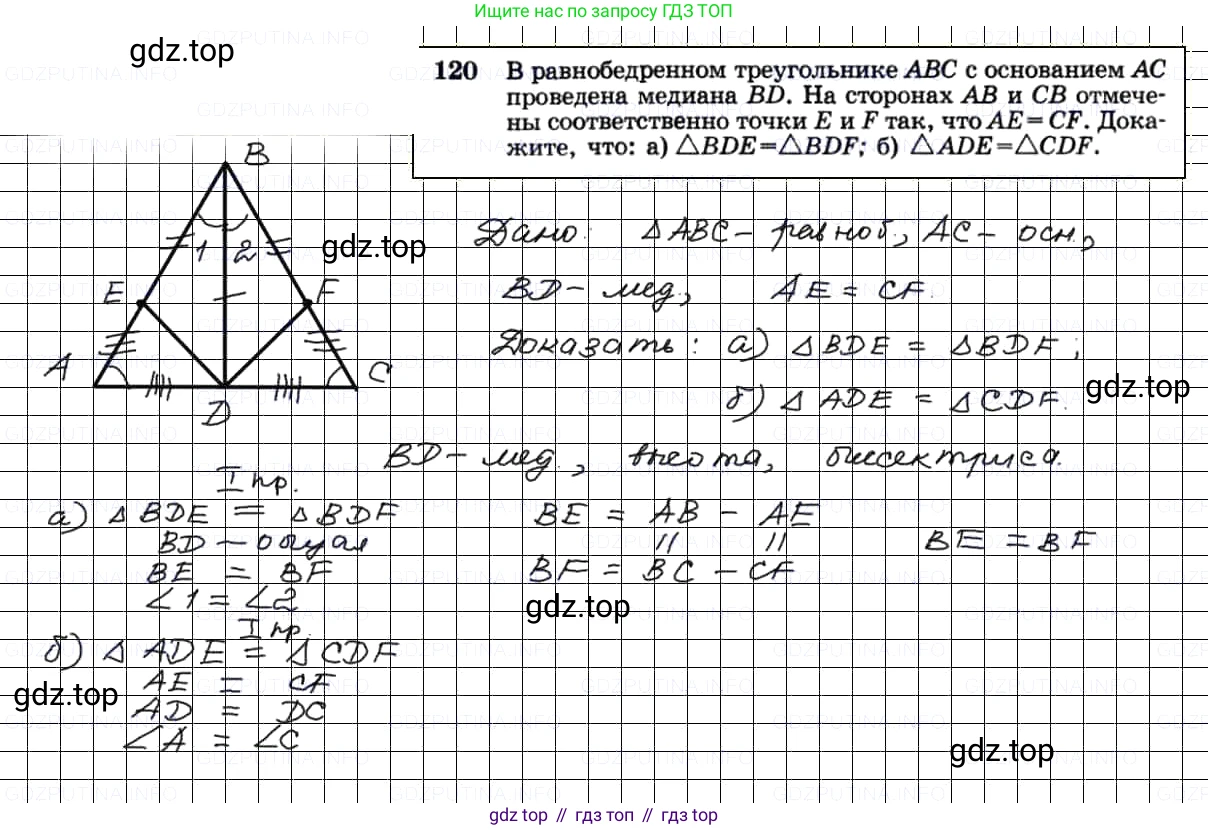 Ищите нас по запросу ГДЗ ТОП
gdz.top
120 В равнобедренном треугольнике ABC с основанием AC
проведена медиана BD. На сторонах AB и CB отмече-
ны соответственно точки E и F так, что AE = CF. Дока-
жите, что: а) △BDE = △BDF; б) △ADE = △CDF.
B
1 2
gdz.top
E F
A C
D
Дано: △ABC – равноб., AC – осн.,
BD – мед., AE = CF.
Доказать: а) △BDE = △BDF;
gdz.top
б) △ADE = △CDF.
BD – мед., высота, биссектриса.
I пр.
а) △BDE = △BDF BE = AB – AE
BD – общая // // BE = BF
BE = BF BF = BC – CF
∠1 = ∠2
gdz.top
I пр.
б) △ADE = △CDF
AE = CF
gdz.top
AD = DC
∠A = ∠C
gdz.top
gdz top // гдз топ // gdz top
GDZPUTINA.INFO